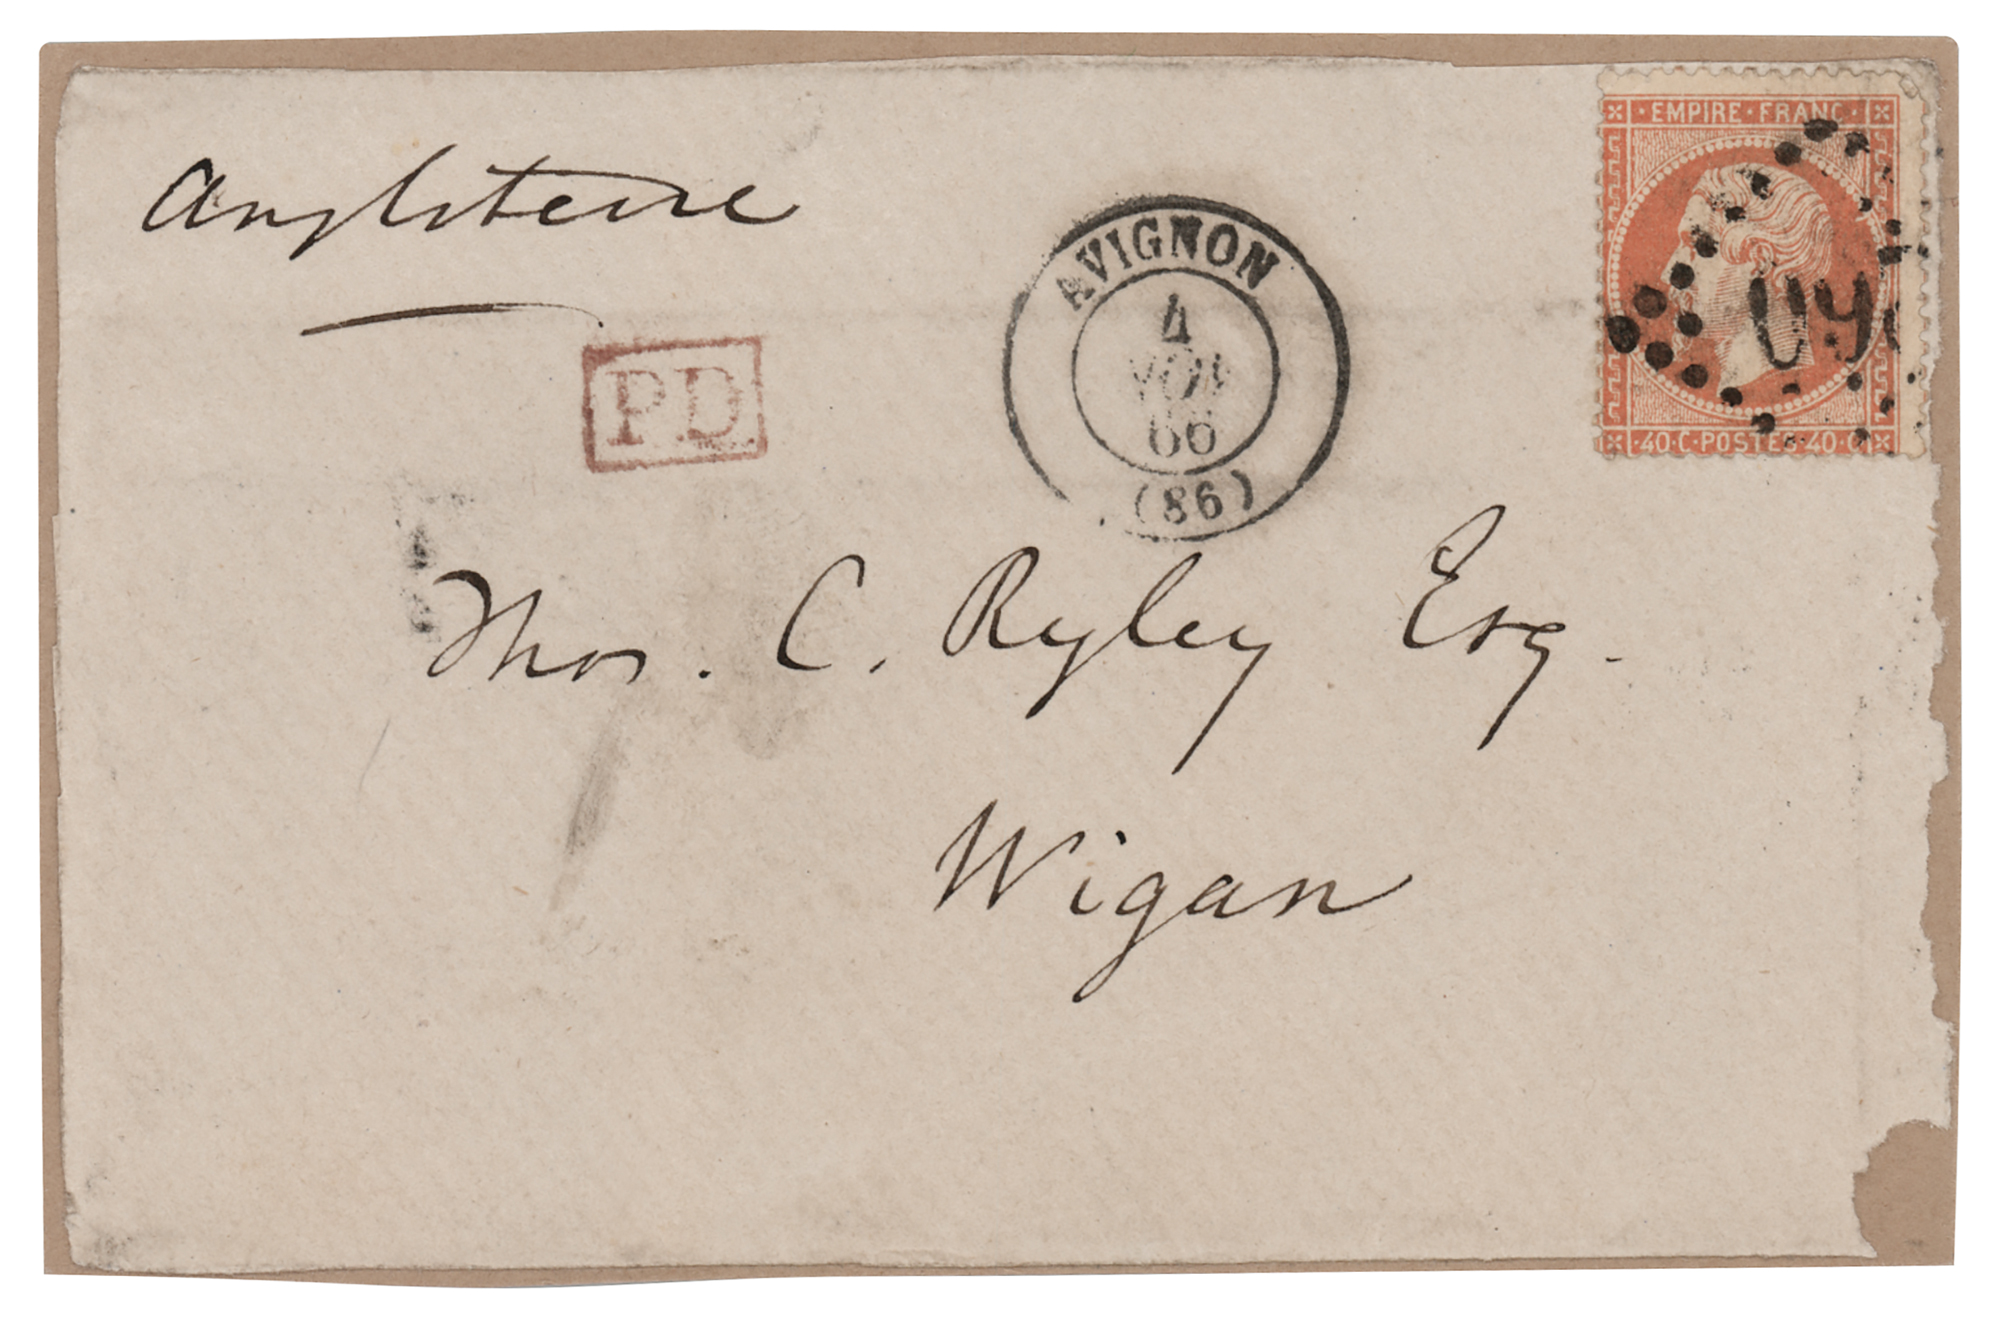 Angleterre
EMPIRE · FRANC
40 · C · POSTES · 40 · C
P.D.
AVIGNON
4
NOV
66
(86)
Thos. C. Ryley Esq.
Wigan